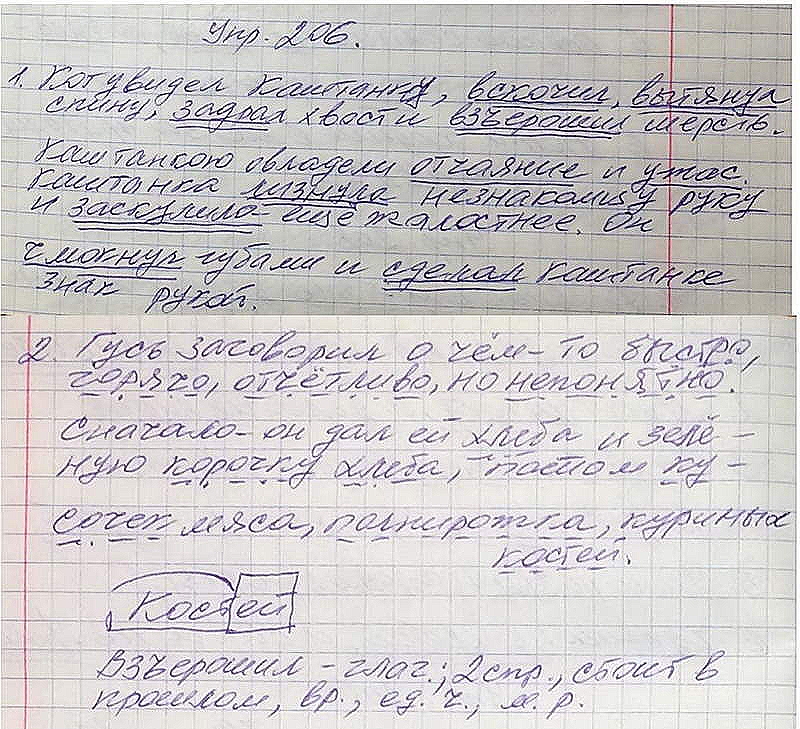 Упр. 206.
1. Кот увидел Каштанку, вскочил, вытянул
спину, задрал хвост и взъерошил шерсть.
Каштанкою овладели отчаяние и ужас.
Каштанка лизнула незнакомцу руку
и заскулила ещё жалостнее. Он
чмокнул губами и сделал Каштанке
знак рукой.
2. Гусь заговорил о чём-то быстро,
горячо, отчётливо, но непонятно.
Сначало он дал ей хлеба и зелё-
ную корочку хлеба, потом ку-
сочек мяса, полпирожка, куриных
костей.
Костей
Взъерошил - глаг.; 2 спр., стоит в
прошлом, вр., ед. ч., м. р.